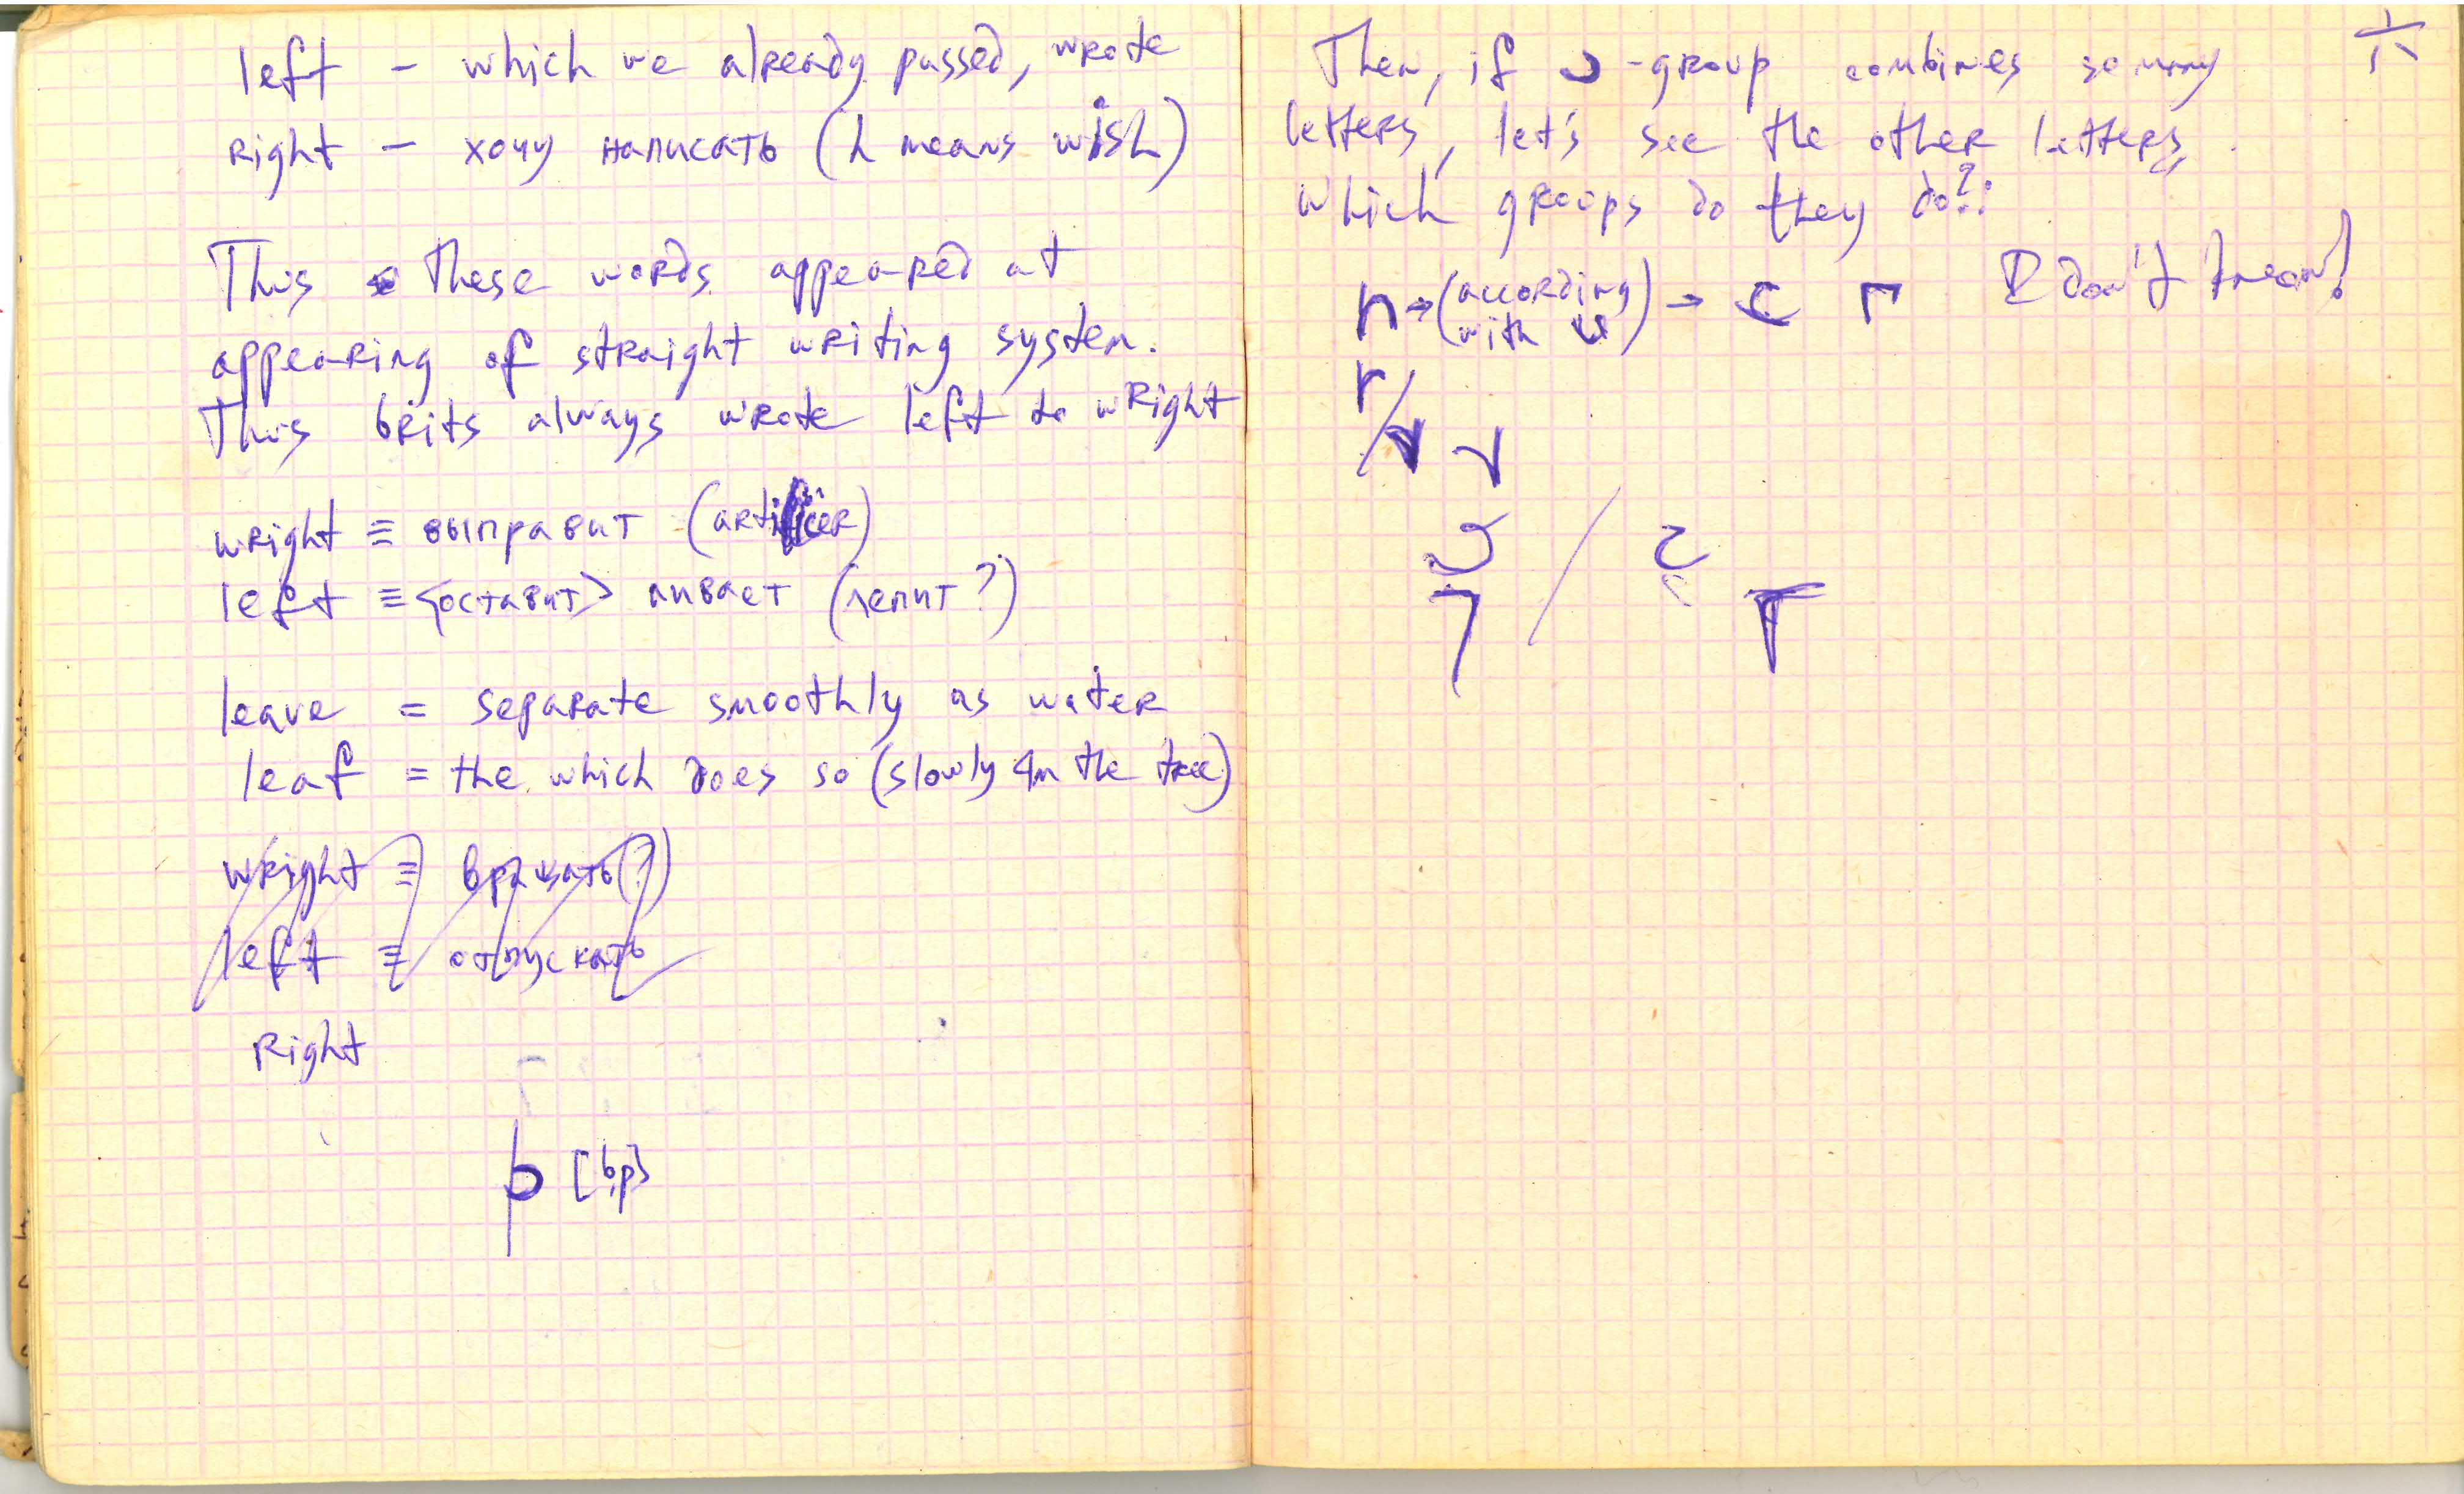 left - which we already passed, wrote
right - хочу написать (h means wish)
Thus these words appeared at
appearing of straight writing system.
Thus brits always wrote left to wright
wright ≡ выправит (artificer)
left ≡ <оставит> ливает (лепит?)
leave = separate smoothly as water
leaf = the which does so (slowly on the tree)
wright ≡ вращать(?)
left ≡ отпускать
Right
b [bp]
六
Then, if -group combines so many
letters, let's see the other letters,
which groups do they do?:
n → (according with) → c г I don't know!
r/v v